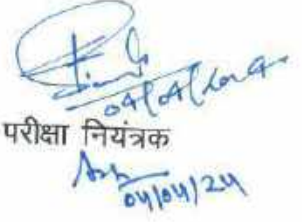 04/04/2024
परीक्षा नियंत्रक
04/04/24